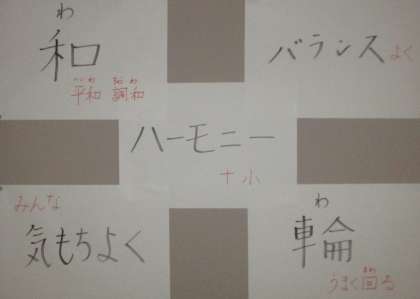 わ
和
へいわ ちょうわ
平和 調和
バランスよく
ハーモニー
十小
みんな
気もちよく
わ
車輪
まわ
うまく回る